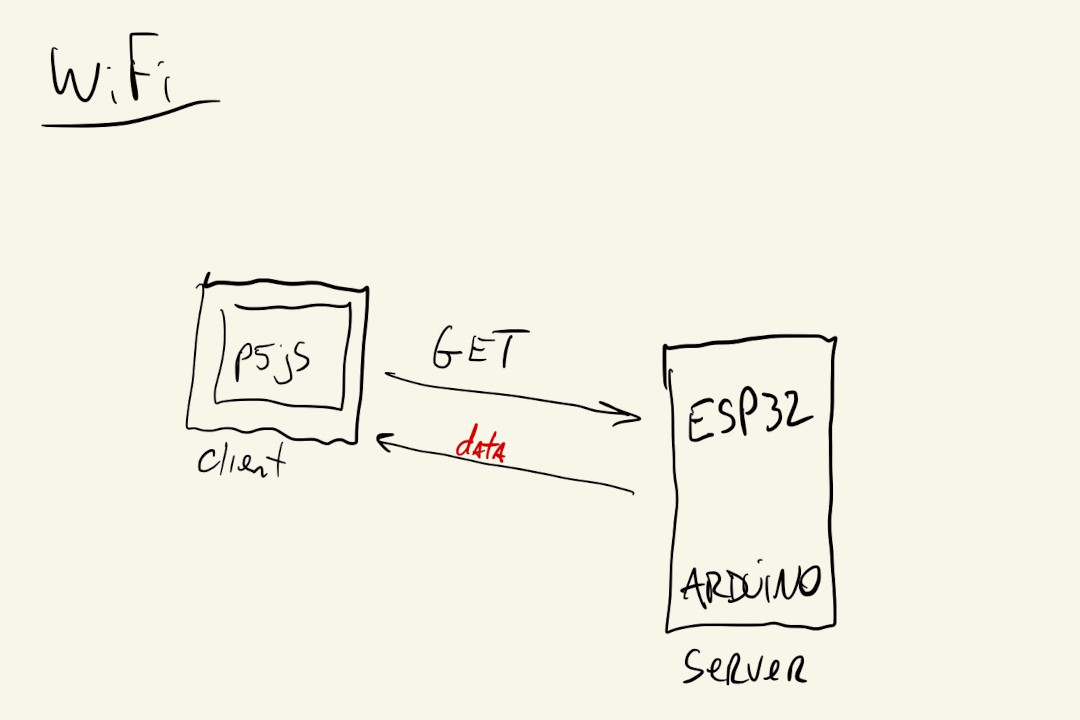 WiFi
P5jS
client
GET
data
ESP32
ARDUiNO
SERVER